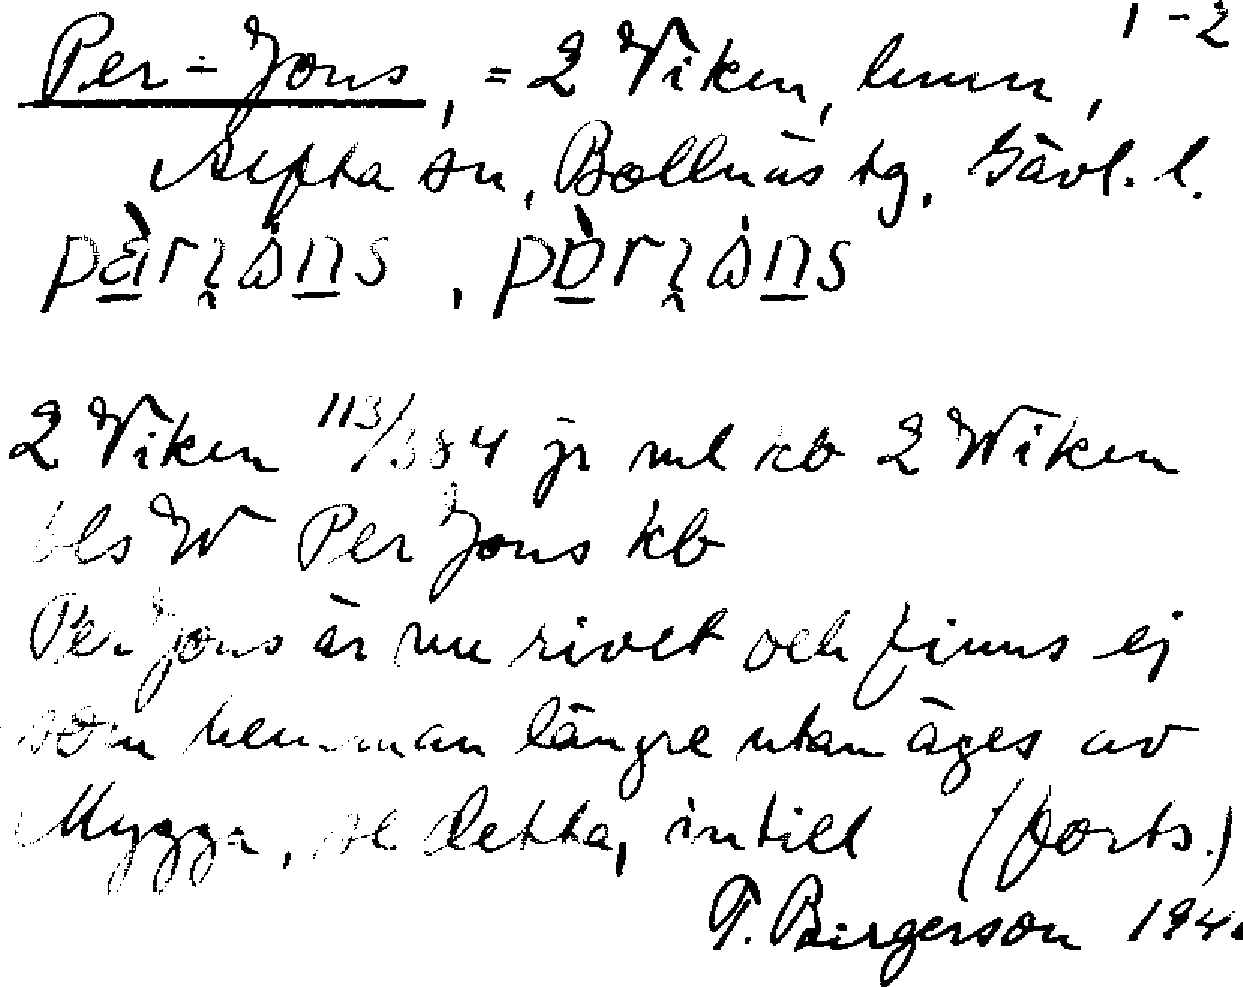 1-2
Per-Jons, = 2 Viken, hmn,
Alfta sn, Bollnäs tg, Gävl. l.
2 Viken 113/384 jr ml kb 2 Wiken
bls W Per Jons kb
Per Jons är nu rivet och finns ej
som hemman längre utan äges av
Mygga, se detta, intill (forts.)
T. Birgerson